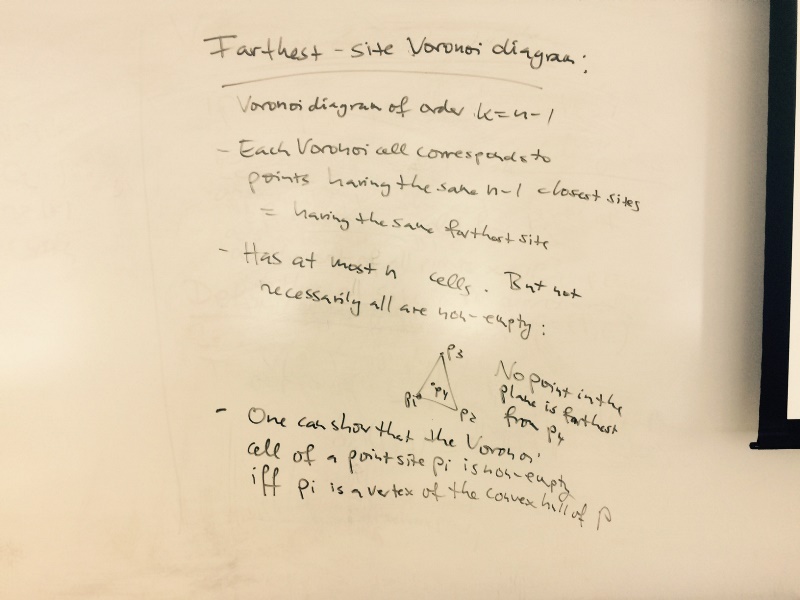 Farthest - site Voronoi diagram:
Voronoi diagram of order k=n-1
- Each Voronoi cell corresponds to
points having the same n-1 closest sites
= having the same farthest site
- Has at most n cells. But not
necessarily all are non-empty:
p3
p1 p4 p2
No point in the
plane is farthest
from p4
- One can show that the Voronoi
cell of a point site pi is non-empty
iff pi is a vertex of the convex hull of P